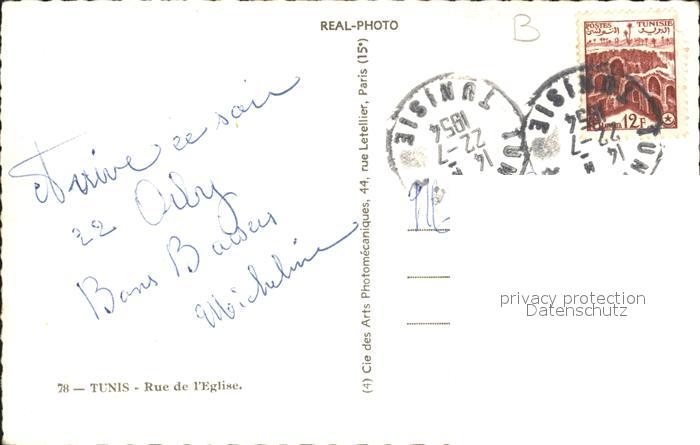 REAL-PHOTO
B
POSTES TUNISIE
12F
TUNISIE
14 22-7
1954
TUNISIE
14 22-7
1954
Arrive ce soir
22 Orly
Bons Baisers
Micheline
M
privacy protection
Datenschutz
(4) Cie des Arts Photomécaniques, 44, rue Letellier, Paris (15e)
78 — TUNIS - Rue de l'Eglise.